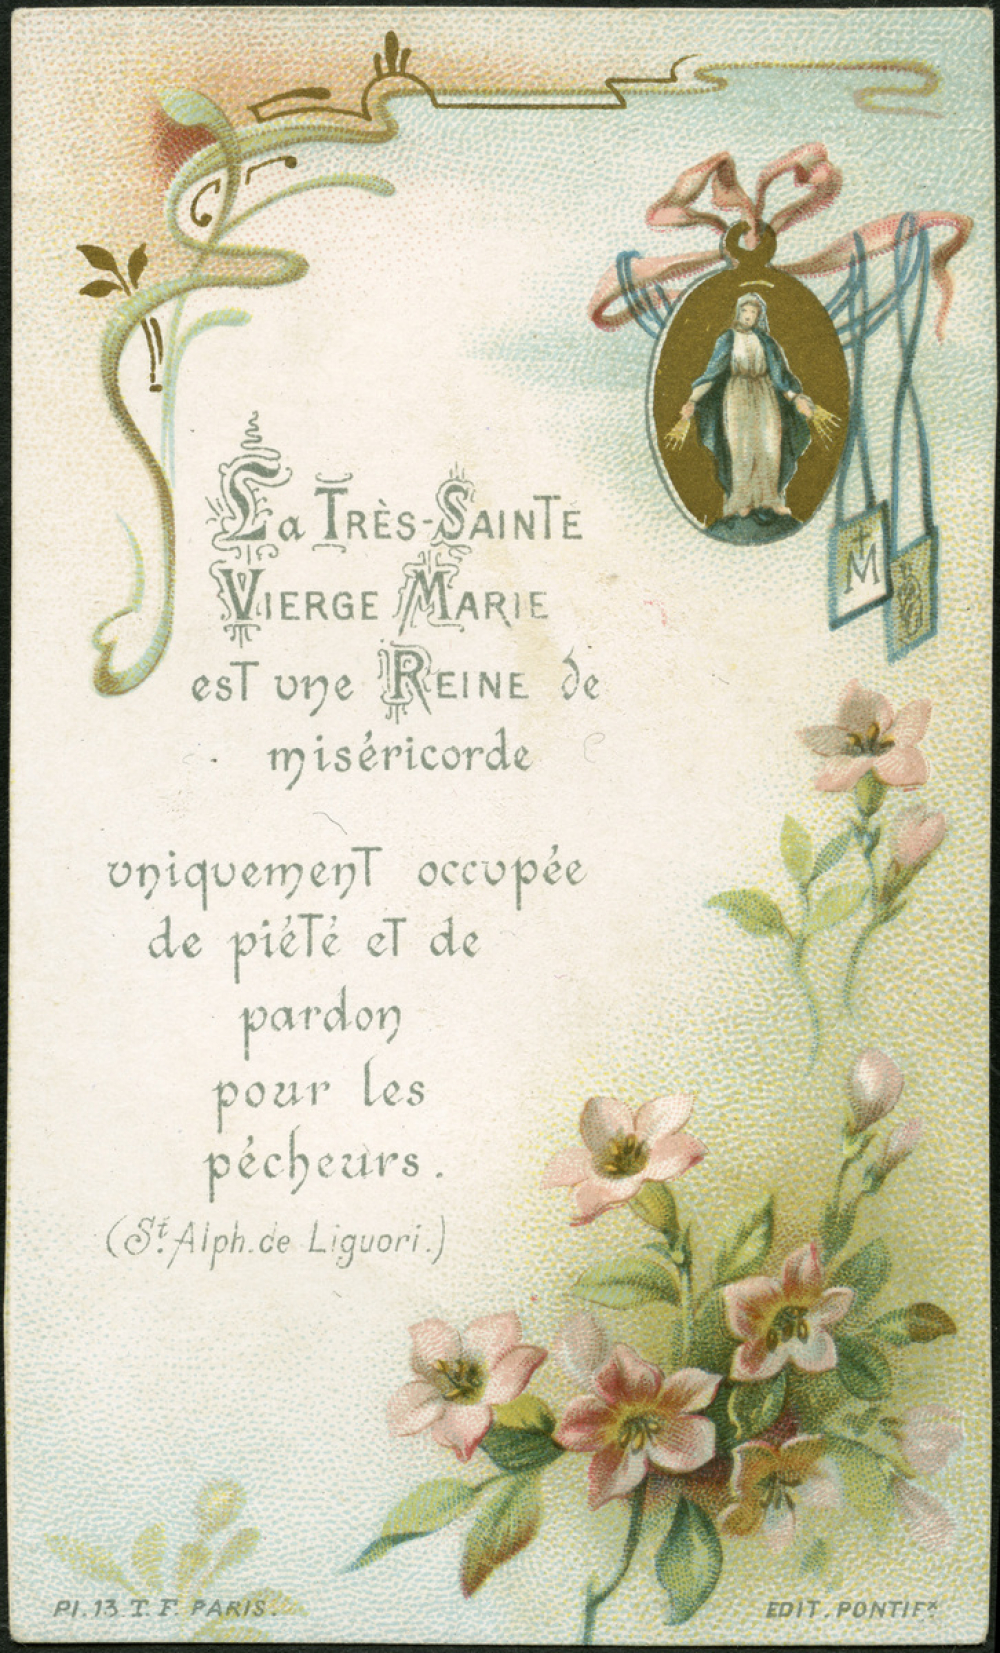 La Très-Sainte
Vierge Marie
est une Reine de
miséricorde
uniquement occupée
de piété et de
pardon
pour les
pécheurs.
(St. Alph. de Liguori.)
M
Pl. 13 T. F. PARIS.
EDIT. PONTIFx